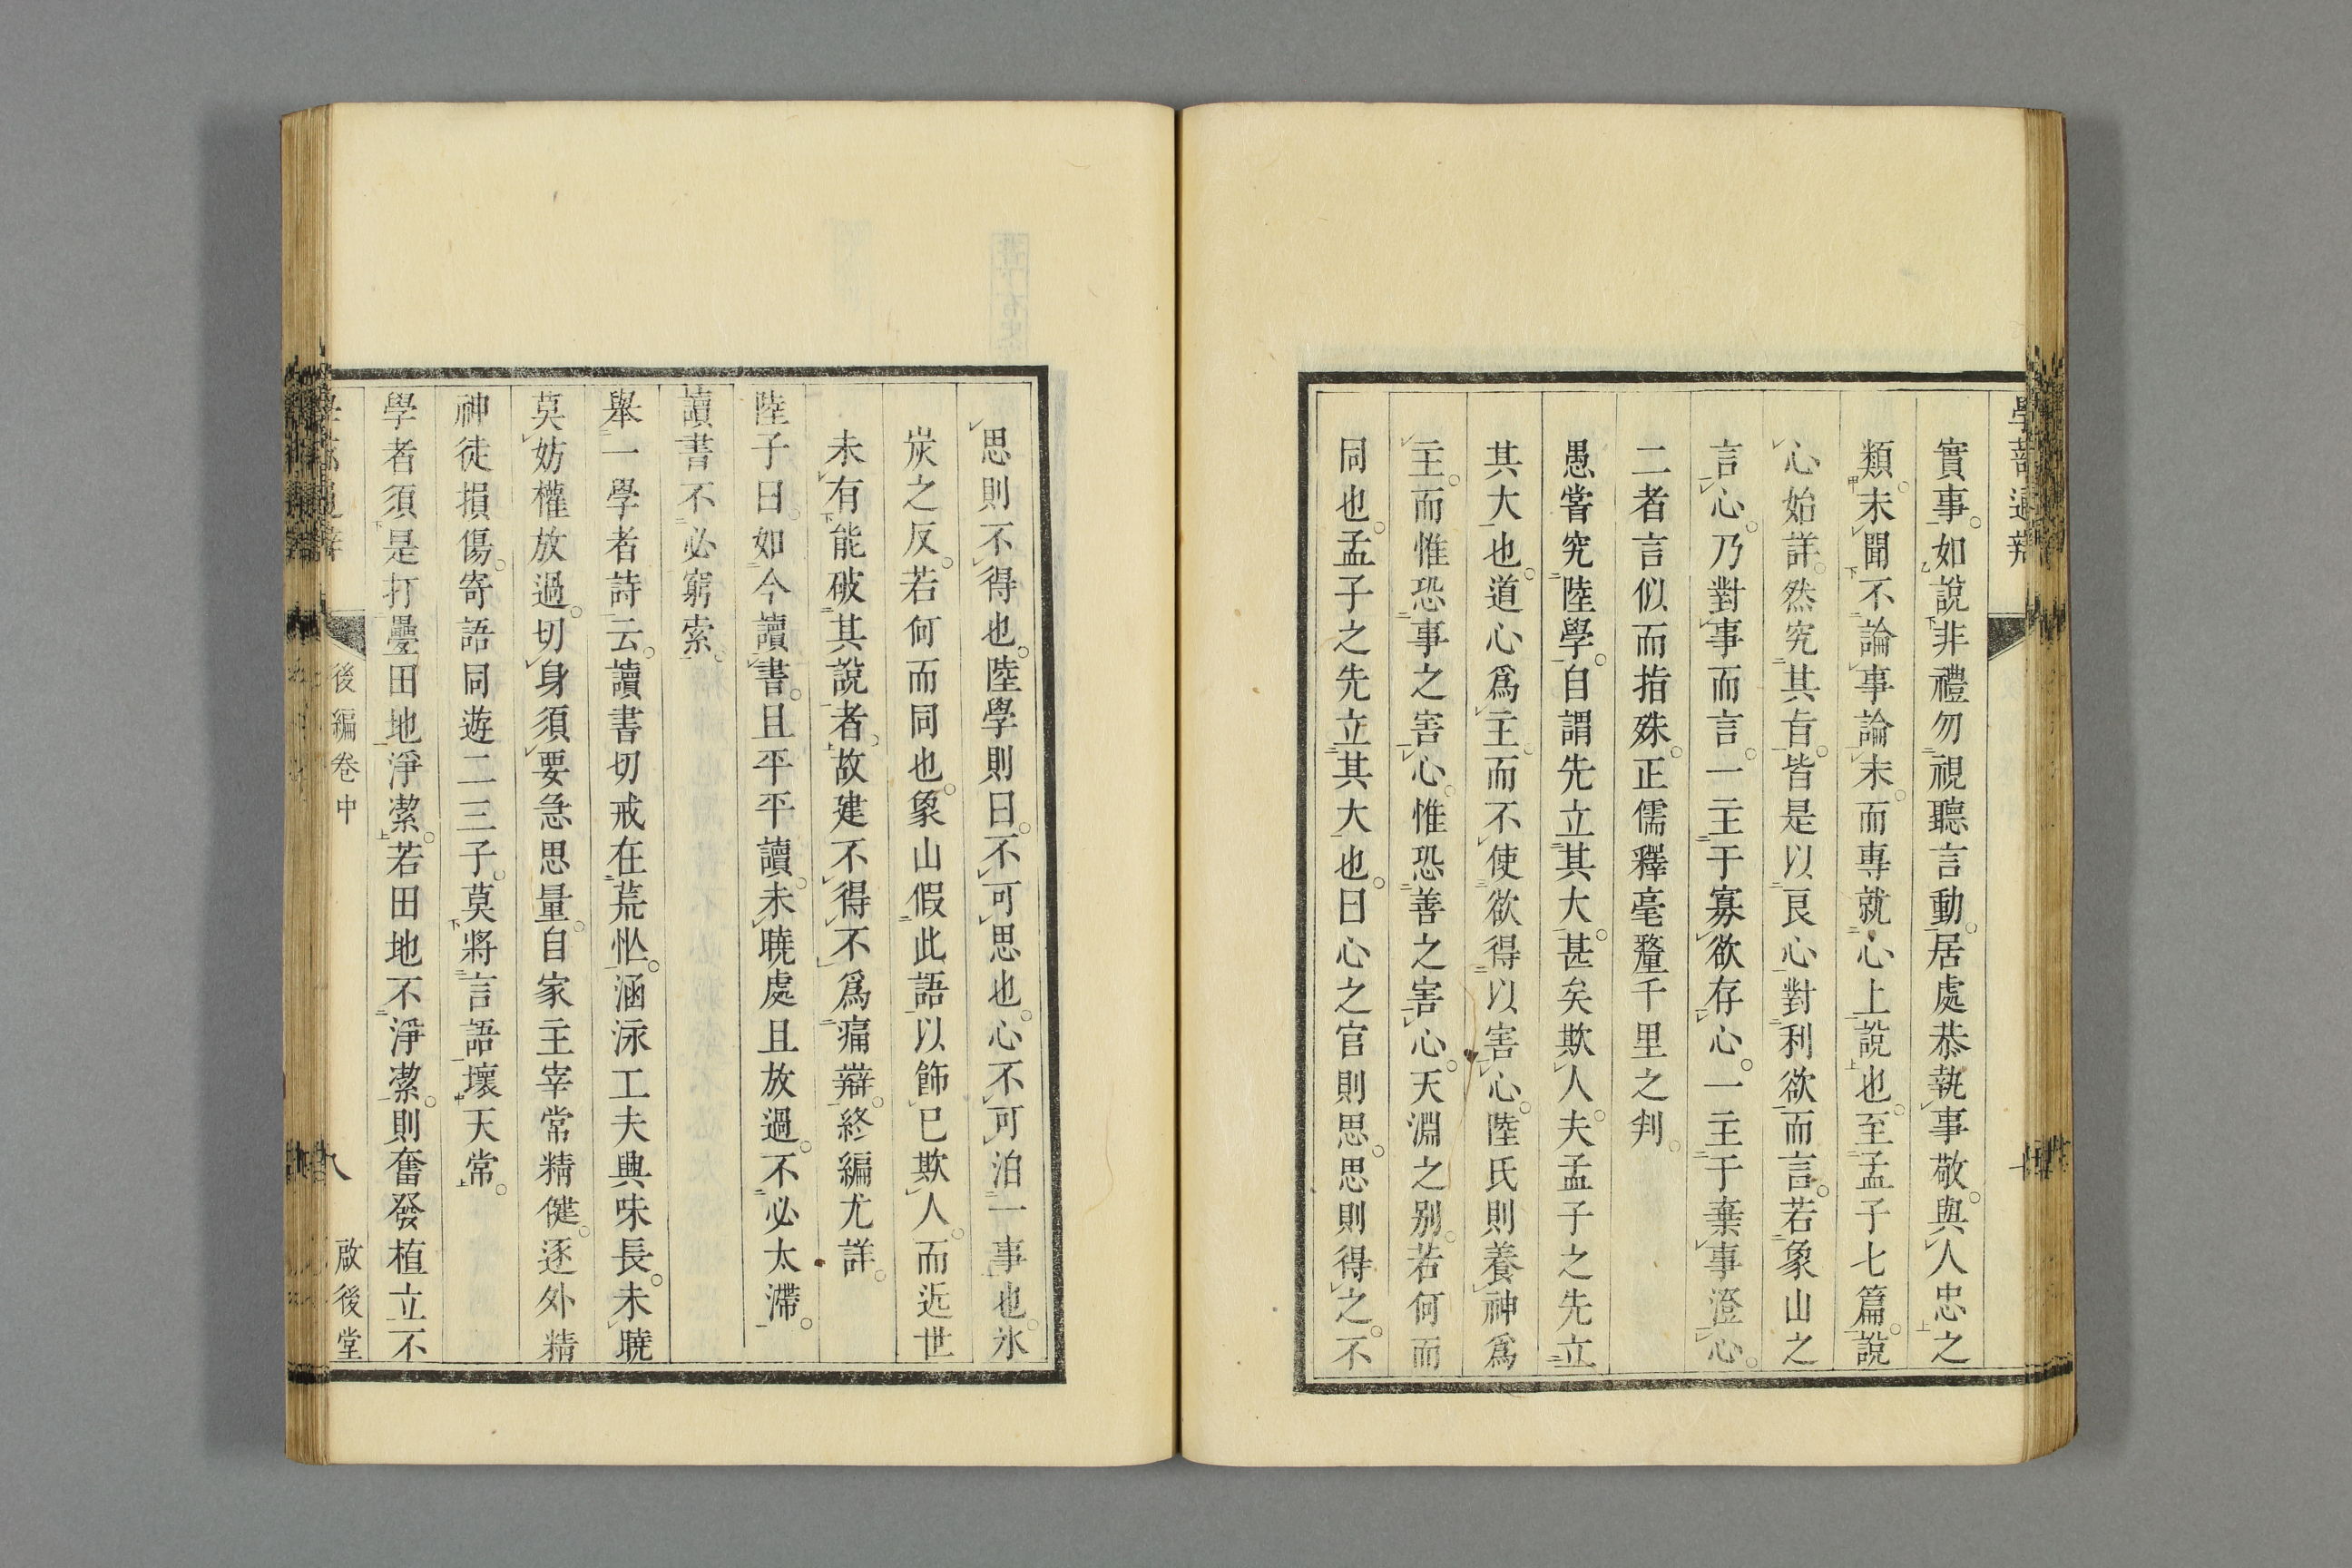 學蔀通辯
實事。如說非禮勿視聽言動。居處恭執事敬。與人忠之
類。未聞不論事論末。而專就心上說也。至孟子七篇。說
心始詳。然究其旨。皆是以良心對利欲而言。若象山之
言心。乃對事而言。一主于寡欲存心。一主于棄事澄心。
二者言似而指殊。正儒釋毫釐千里之判。
愚嘗究陸學。自謂先立其大。甚矣欺人。夫孟子之先立
其大也。道心爲主。而不使欲得以害心。陸氏則養神爲
主。而惟恐事之害心。惟恐善之害心。天淵之别。若何而
同也。孟子之先立其大也。曰心之官則思。思則得之。不
思則不得也。陸學則曰。不可思也。心不可泊一事也。氷
炭之反。若何而同也。象山假此語以飾已欺人。而近世
未有能破其說者。故建不得不爲痛辯。終編尤詳。
陸子曰。如今讀書。且平平讀。未曉處且放過。不必太滯。
讀書不必窮索。
舉一學者詩云。讀書切戒在荒忙。涵泳工夫興味長。未曉
莫妨權放過。切身須要急思量。自家主宰常精健。逐外精
神徒損傷。寄語同遊二三子。莫將言語壞天常。
學者須是打疊田地淨潔。若田地不淨潔。則奮發植立不
後編卷中
八
啟後堂